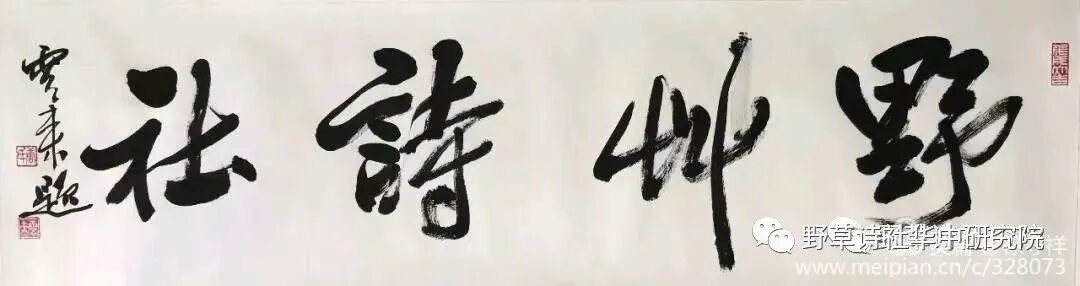 野艸詩社
来題
野草诗社华中研究院
www.meipian.cn/c/328073